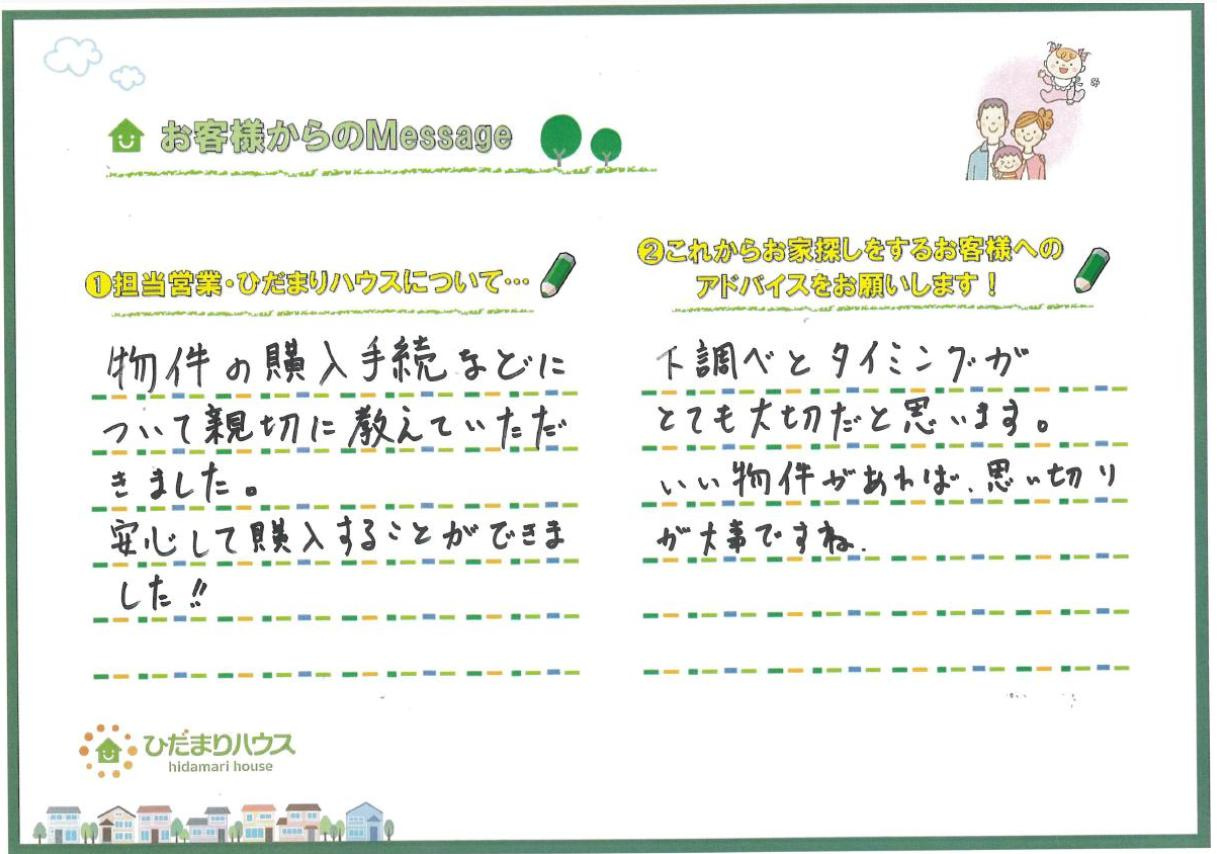 お客様からのMessage
❶担当営業・ひだまりハウスについて…
物件の購入手続などに
ついて親切に教えていただ
きました。
安心して購入することができま
した!!
❷これからお家探しをするお客様への
アドバイスをお願いします！
下調べとタイミングが
とても大切だと思います。
いい物件があれば、思い切り
が大事ですね。
ひだまりハウス
hidamari house